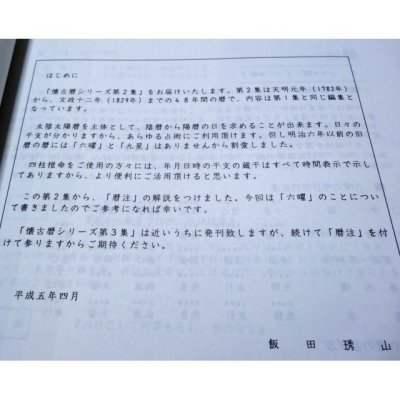 はじめに
「懐古暦シリーズ第2集」をお届けいたします。第2集は天明元年(1782年)
から、文政十二年(1829年)までの48年間の暦で、内容は第1集と同じ編集と
なっています。
太陰太陽暦を主体として、陰暦から陽暦の日を求めることが出来ます。日々の
干支が分かりますから、あらゆる占術にご利用頂けます。但し明治六年以前の旧
暦の暦には「六曜」と「九星」はありませんから割愛しました。
四柱推命をご使用の方々には、年月日時の干支の蔵干はすべて時間表示で示し
てありますから、より便利にご活用頂けると思います。
この第2集から、「暦注」の解説をつけました。今回は「六曜」のことについ
て書きましたのでご参考になれば幸いです。
「懐古暦シリーズ第3集」は近いうちに発刊致しますが、続けて「暦注」を付
けて参りますからご期待ください。
平成五年四月
飯田琇山